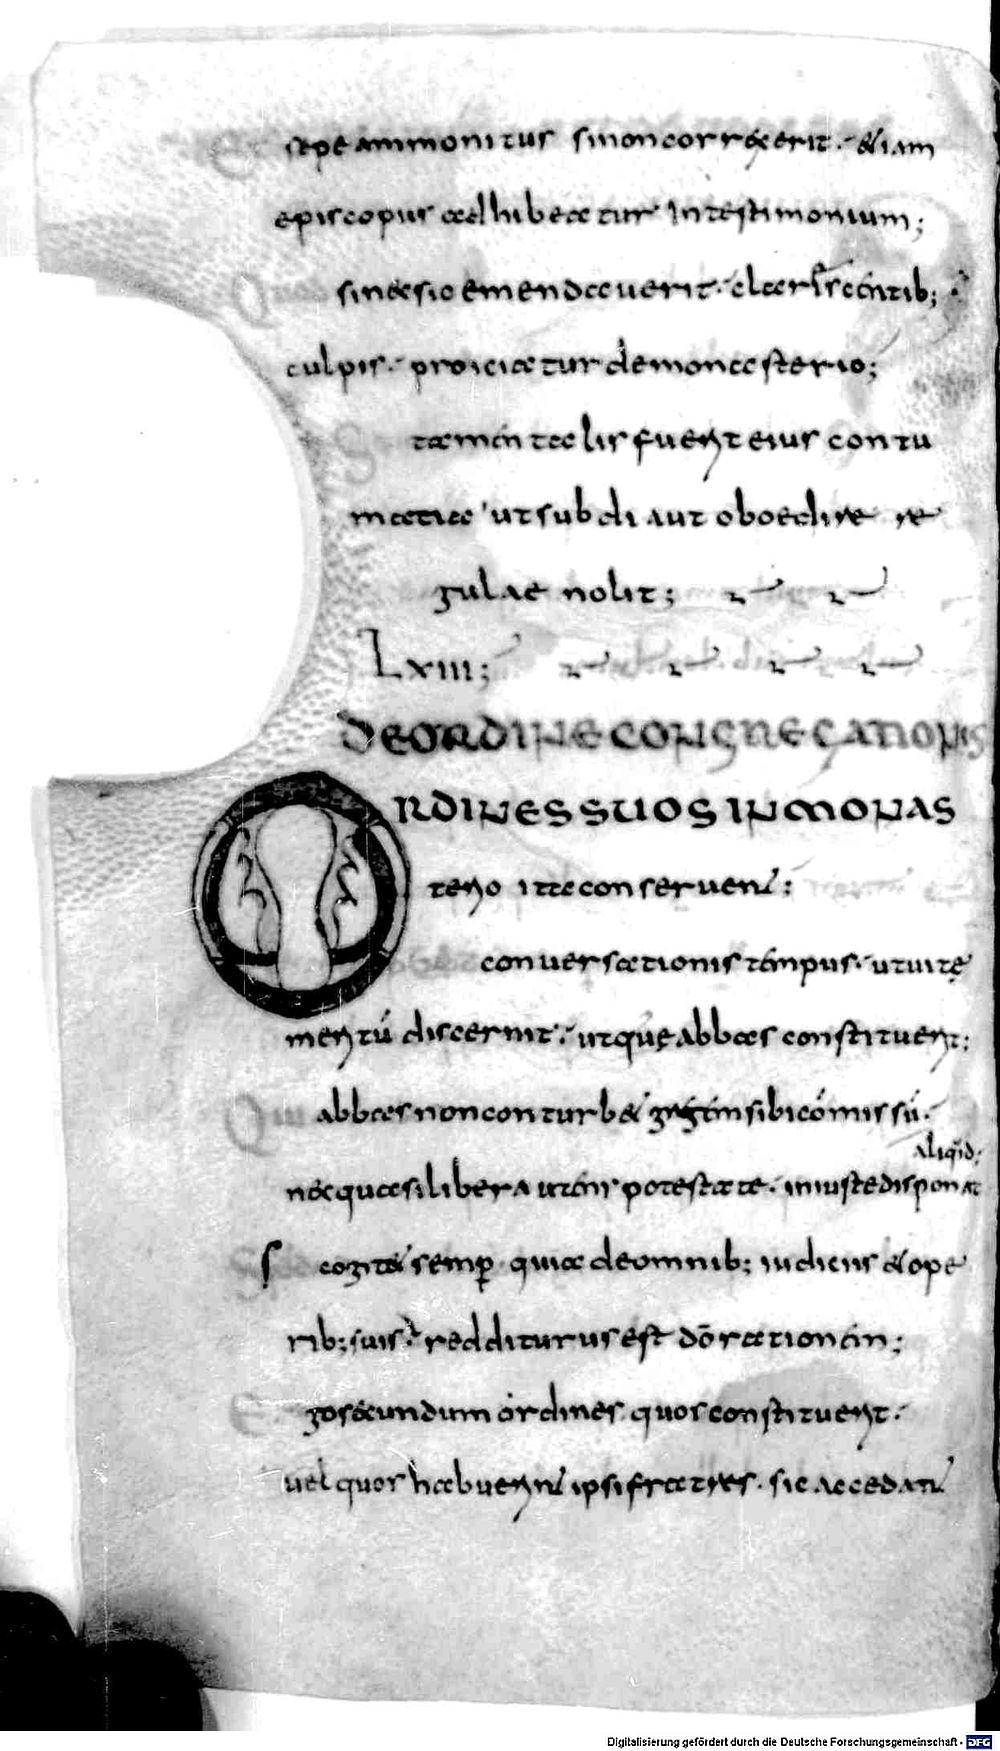 Et sepe ammonitus si non correxerit · etiam
episcopus adhibeatur in testimonium;
Quod si nec sic emendaverit · clarescentib;
culpis · proiciatur de monasterio;
Si tamen talis fuerit eius contu
matia ut subdi aut oboedire re
gulae nolit;
LXIII;
DE ORDINE CONGREGATIONIS
ORDINES SUOS IN MONAS
terio ita conservent:
conversationis tempus · ut vitę
meritū discernit · utque abbas constituerit;
Qui abbas non conturbet gregem sibi cōmissū ·
aliquid;
nec quasi libera utens potestate · iniuste disponat
Sed cogitet semper quia de omnib; iudiciis et ope
rib; suis · redditurus est dō rationem;
Ergo secundum ordines quos constituerit ·
vel quos habuerint ipsi fratres · sic accedant
Digitalisierung gefördert durch die Deutsche Forschungsgemeinschaft - DFG